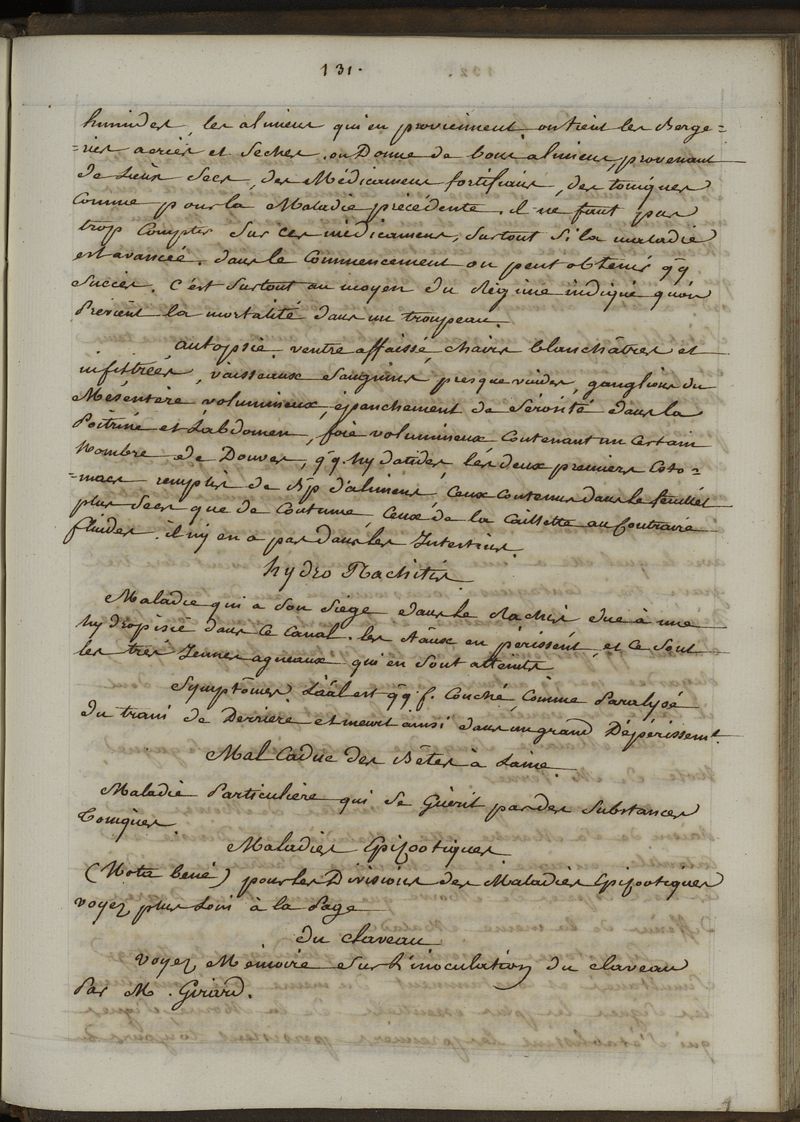 131.
humides, les alimens qui en proviennent. on tient les Berge=
=ries aeriés et seches. on Donne de bons alimens, provenant
de Lieux Secs, des Médicamens fortifians, des toniques
Comme pour la Maladie precédente. il ne faut pas
trop Compter Sur ces médicamens, Surtout Si la maladie
est avancée. dans le Commencement on peut obtenir qq
Succès. C'est Surtout au moyen du Régime indiqué qu'on
Previent la mortalité dans un troupeau.
autopsie. ventre affaissé, chairs blanchâtres et
infiltrées, vaisseaux Sanguins presque vuides, ganglions du
Mésentère volumineux, épanchement de Sérosité dans la
Poitrine et Labdomen, foie volumineux Contenant un Certain
Nombre de Douves, qq. hydatides, les deux premiers Esto=
=macs remplis de Bp d'alimens, Ceux Contenus dans le feuillet
plus Secs que de Coutume, Ceux de la Caillette au Contraire
fluides. il n'y en a pas dans les Intestins.
hydro Rachitis
Maladie qui a Son Siége dans le Rachis due à une
hydropisie dans Ce Canal. les Aãux en périssent, et Ce Sont
les tres Jeunes agneaux qui en Sont atteints
Symptômes. L'aãl est qq. f. Couché, Comme Paralysé
du train de Derriere et meurt ainsi dans un grand Dépérissemt.
Mal Caduc des Bêtes à Laine
Maladie Particuliere qui Se Guérit par des Substances
Toniques
Maladies Epizootiques
(Nota bené) pour les Divisions des Maladies Epizootiques
voyez plus Loin à la Page
Du claveau
Voyez Mémoire Sur L'inoculation du claveau
Par M. Girard.